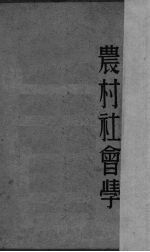 農村社會學